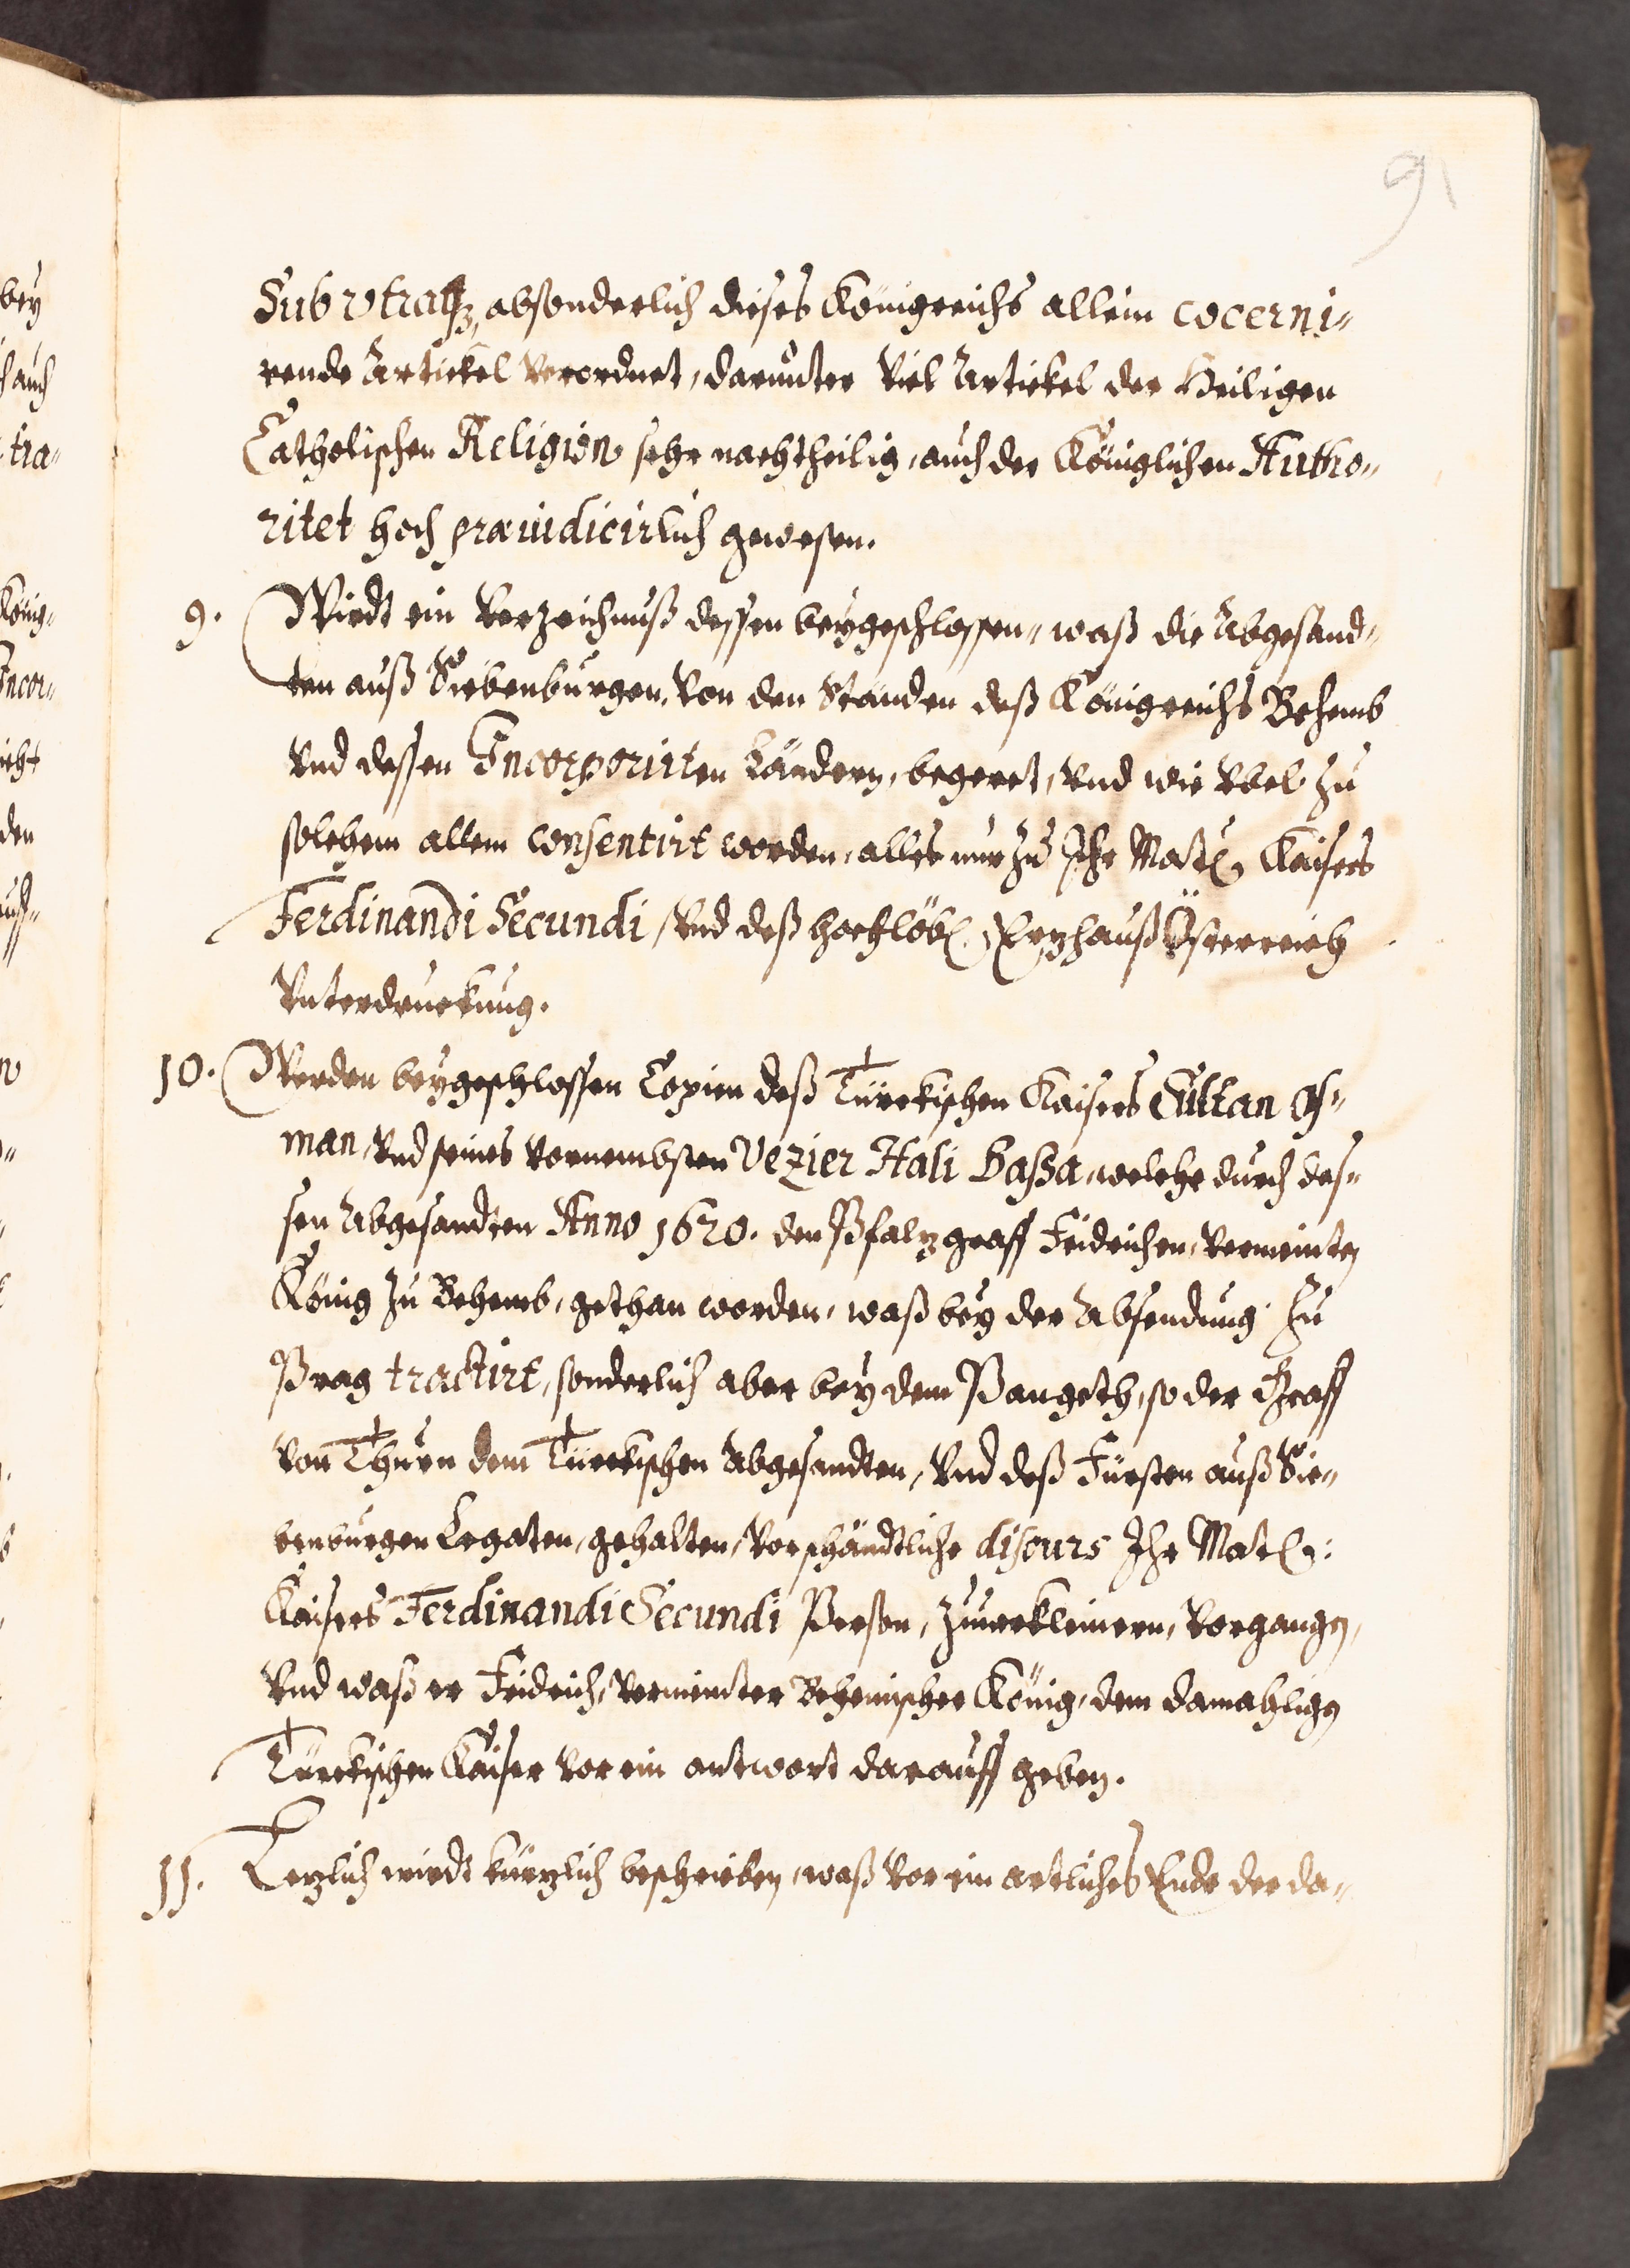 91
Sub vtraqz, absonderlich dieses Königreichs allein cocerni-
rende Artickel verordnet, darunter viel Artickel der Heiligen
Catholischen Religion sehr nachtheilig, auch der Königlichen Autho-
ritet hoch præiudicirlich gewesen.
9. Wirdt ein Verzeichnuß dessen beygeschlossen, waß die Abgesand-
ten auß Siebenburgen, von den Ständen deß Königreichs Behemb
vnd dessen Incorporirten Ländern, begeret, vnd wie vbel zu
solchem allem consentirt worden, alles nur zu Ihr Matt. Kaisers
Ferdinandi Secundi, vnd deß hochlöbl. Erzhauß Österreich
vnterdruckung.
10. Werden beygeschlossen Copien deß Türckischen Kaisers Sultan Oß-
man, vnd seines vornembsten Vezier Hali Bassa, welche durch des-
sen Abgesandten Anno 1620. den Pfalzgraff Fridrichen, vermeinten
König zu Behemb, gethan worden, waß bey der Absendung zu
Prag tractirt, sonderlich aber bey dem Pangeth, so der Graff
von Thurn dem Türckischen Abgesandten, vnd deß Fürsten auß Sie-
benburgen Legaten, gehalten, vor schändtliche discurs Ihr Matt.:
Kaisers Ferdinandi Secundi Person, zuuerkleinern, vorgangen,
vnd waß er Fridrich, vermeinter Behemischer König, dem damahligen
Türckischen Kaiser vor ein antwort darauff geben.
11. Lezlich wirdt kürzlich beschrieben, waß vor ein artliches Ende der da-